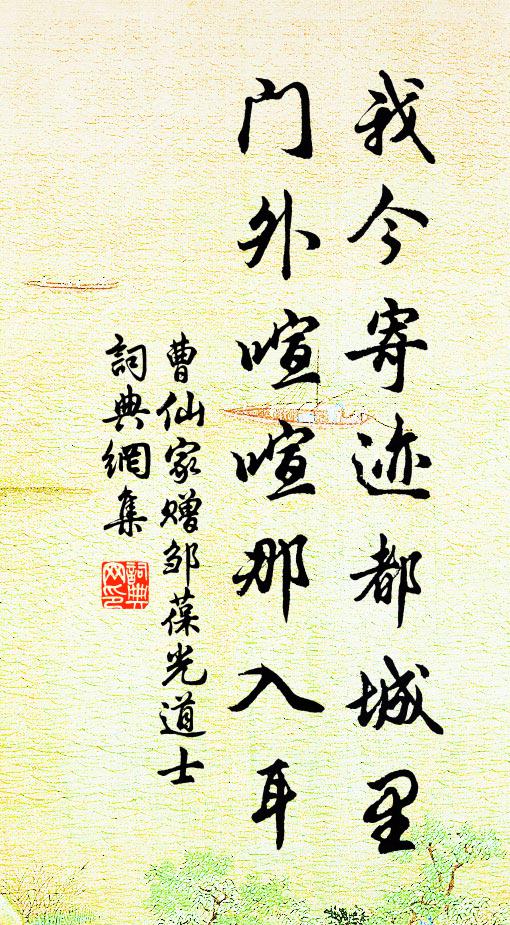 我今寄迹都城里
门外喧喧那入耳
曹仙家赠邹葆光道士
詞典網集
詞典网印